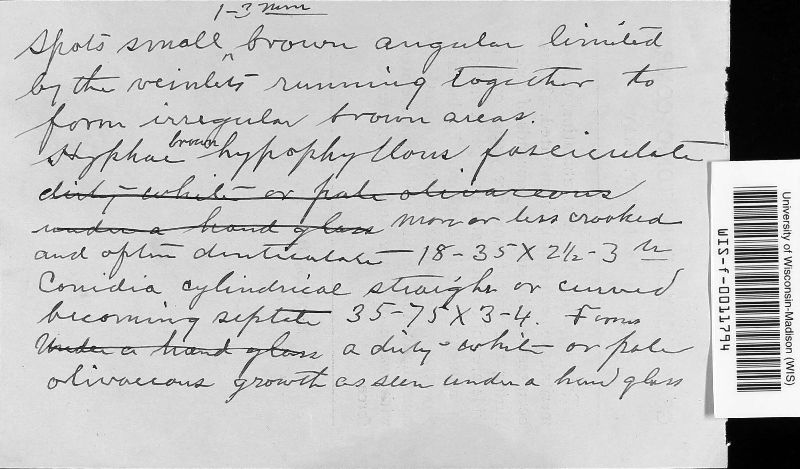 1-3 mm
Spots small ^ brown angular limited
by the veinlets running together to
form irregular brown areas.
Hyphae brown hypophyllous fasciculate
dirty-white or pale olivaceous
under a hand glass more or less crooked
and often denticulate 18-35 X 2½-3 u
Conidia cylindrical straight or curved
becoming septate 35-75 X 3-4. Forms
Under a hand glass a dirty-white or pale
olivaceous growth as seen under a hand glass
University of Wisconsin-Madison (WIS)
WIS-f-0011794